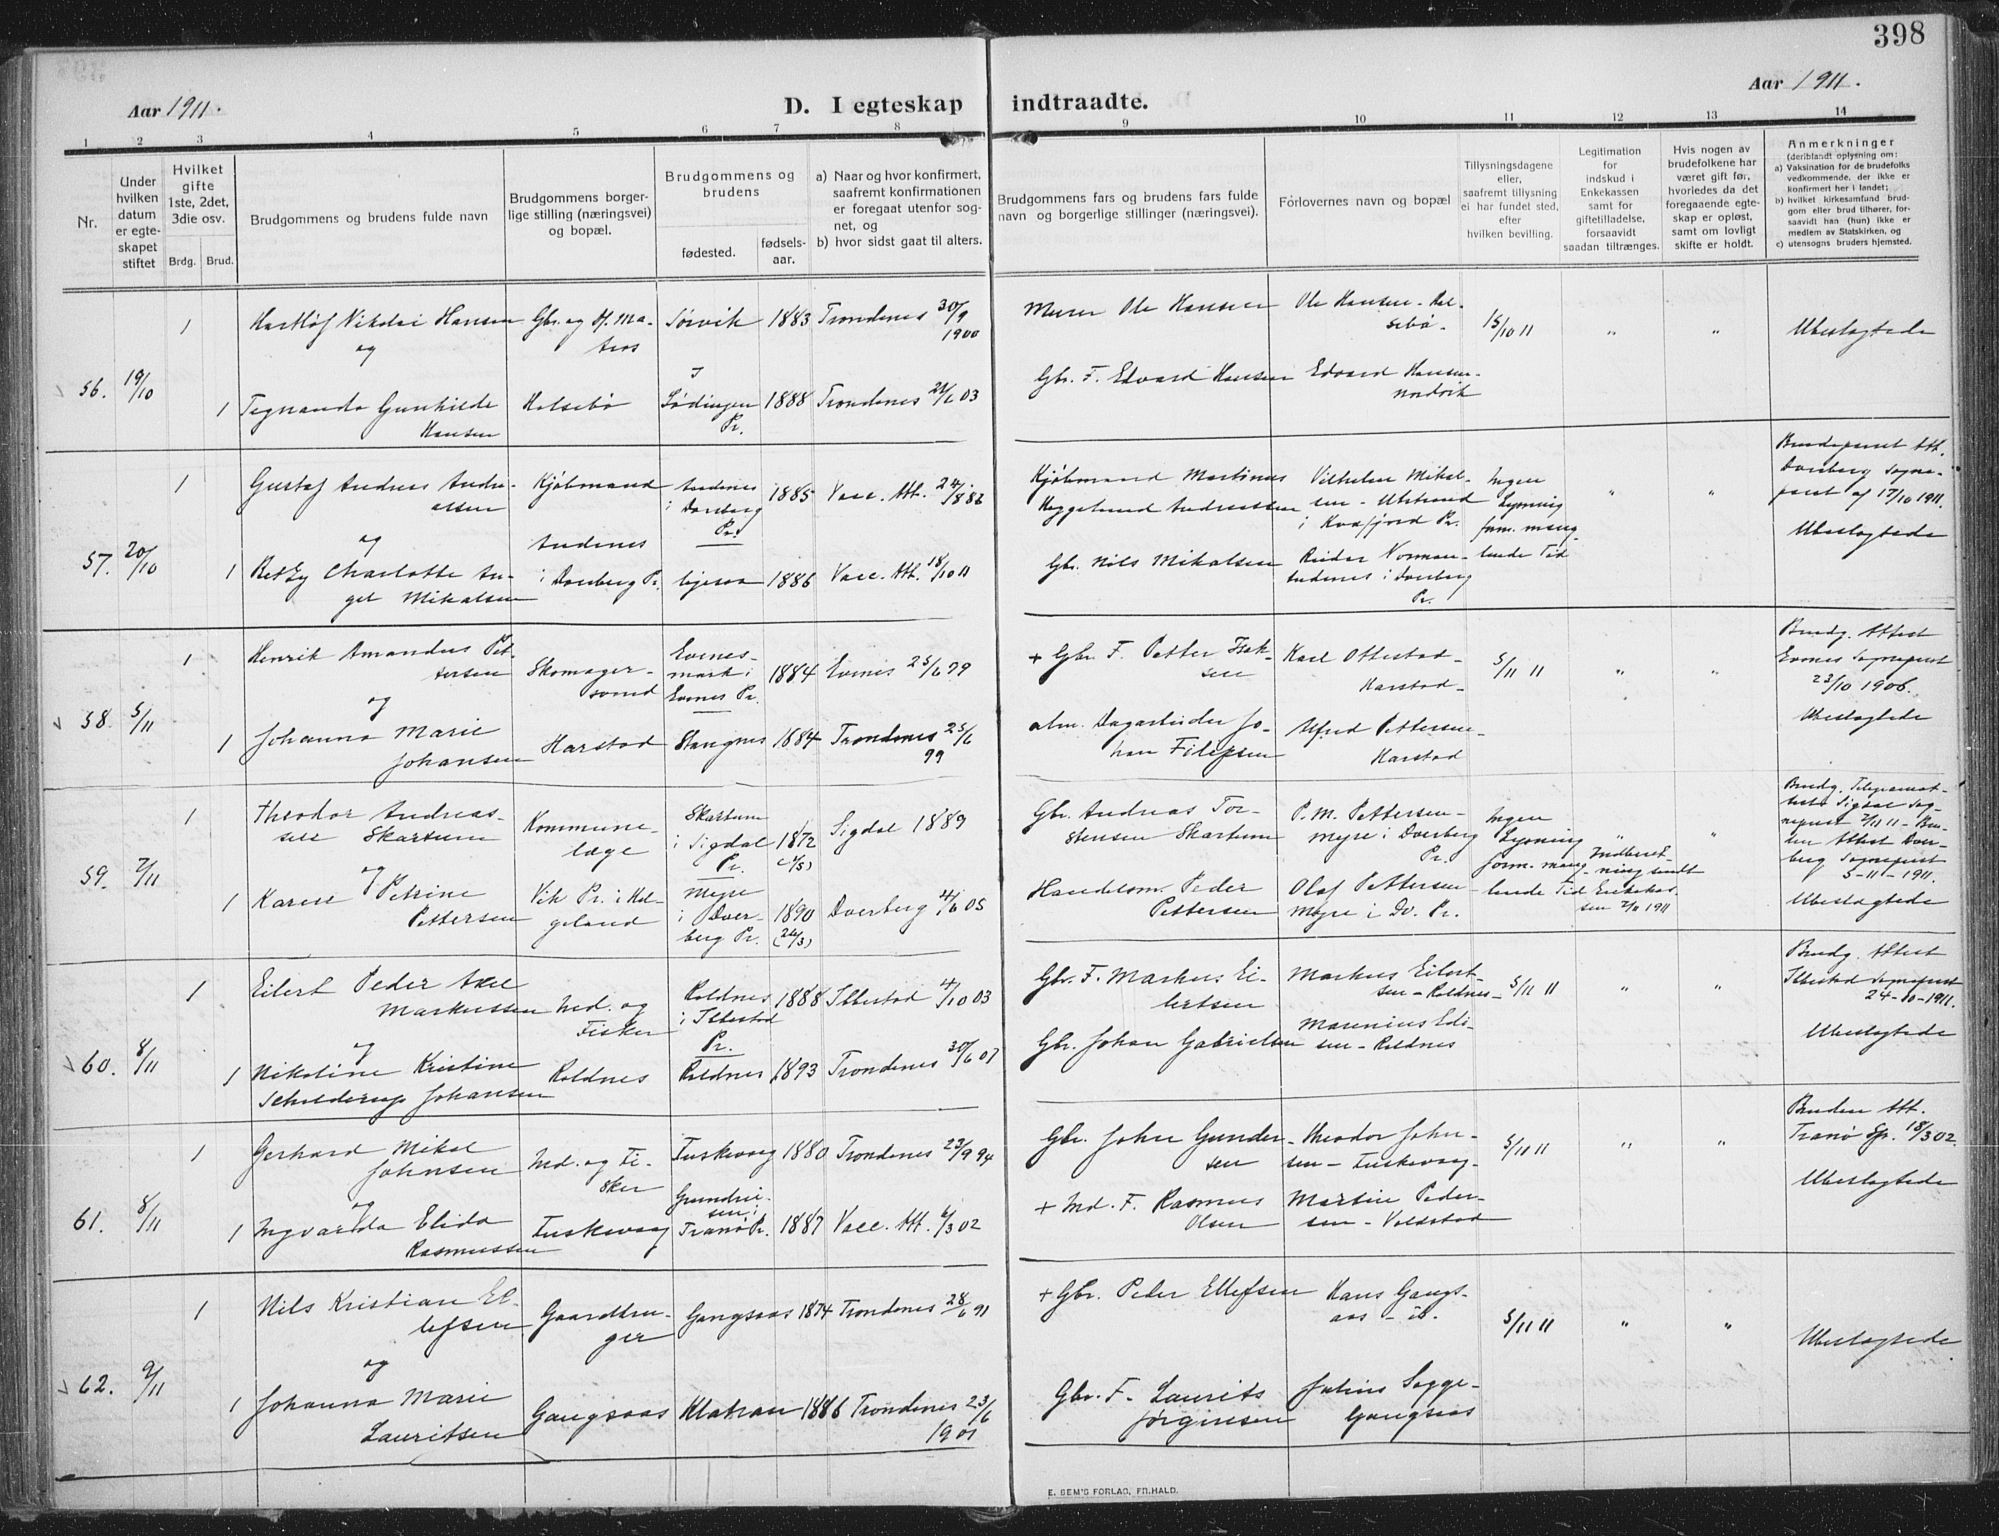 398
Aar 1911.
D. I egteskap indtraadte.
Aar 1911.
1 2 3 4 5 6 7 8 9 10 11 12 13 14
Nr.
Under
hvilken
datum
er egte-
skapet
stiftet
Hvilket
gifte
1ste, 2det,
3die osv.
Brdg. Brud.
Brudgommens og brudens fulde navn
Brudgommens borger-
lige stilling (næringsvei)
og bopæl.
Brudgommens og
brudens
fødested.
fødsels-
aar.
a) Naar og hvor konfirmert,
saafremt konfirmationen
er foregaat utenfor sog-
net, og
b) hvor sidst gaat til alters.
Brudgommens fars og brudens fars fulde
navn og borgerlige stillinger (næringsvei).
Forlovernes navn og bopæl
Tillysningsdagene
eller,
saafremt tillysning
ei har fundet sted,
efter
hvilken bevilling.
Legitimation
for
indskud i
Enkekassen
samt for
giftetilladelse,
forsaavidt
saadan tiltrænges.
Hvis nogen av
brudefolkene har
været gift før,
hvorledes da det
foregaaende egte-
skap er opløst,
samt om lovligt
skifte er holdt.
Anmerkninger
(deriblandt oplysning om:
a) Vaksination for de brudefolks
vedkommende, der ikke er
konfirmert her i landet;
b) hvilket kirkesamfund brud-
gom eller brud tilhører, for-
saavidt han (hun) ikke er
medlem av Statskirken, og
c) utensogns bruders hjemsted.
56. 19/10
1
Nikolai Hansen
og
1
Gunhilde
Hansen
Gbr. og
Sørvik 1883 Trondenes 30/9
1900
Lødingen 1888 Trondenes 21/6 03
Pr.
Murer Ole Hansen
Gbr. F. Edvard Hansen
Ole Hansen
Edvard Hansen
15/10 11 " "
Ubeslægtede
57. 20/10
1
Gustaf Andreas Andre-
asen
og
1
Betzy Charlotte
Mikalsen
Kjøbmand
Andenes
i Dverberg Pr.
Andenes
i Dverberg
Pr.
1885 Vacc. Att. 24/8 86
ligesaa 1886 Vacc. Att. 18/10 11
Kjøbmand Martinus
Andreassen
Gbr. Nils Mikalsen
Vilhelm Mikal-
sen
i Kvæfjord Pr.
Norman
Andenes i Dverberg
Pr.
Ingen
Lysning
form. mang-
lende Tid
" "
Att.
Dverberg Sogne-
prest af 17/10 1911.
Ubeslægtede
58. 5/11
1
Henrik Amandus Pet-
tersen
og
1
Johanna Marie
Johansen
Skomager-
svend
Harstad
Evenes-
mark i
Evenes Pr.
1884 Evenes 25/6 99
Stangnes 1884 Trondenes 25/6
99
+ Gbr. F. Petter Isak-
sen
alm. Dagarbeider Jo-
han Filipsen
Karl Ottestad-
Harstad-
Alfred Pettersen-
Harstad
5/11 11 " "
Brudg. Attest
Evenes Sogneprest
23/10 1906.
Ubeslægtede
59. 7/11
1
Theodor Andreas-
sen Skartum
og
1
Karen Petrine
Pettersen
Kommune-
læge
Vik Pr. i Hel-
geland
Skartum
i Sigdal
Pr.
1872
Sigdal 1889
Myre
i Dver-
berg Pr.
1890
(26/3)
Dverberg 4/6 05
Gbr. Andreas Tor-
stensen Skartum
Handelsm. Peder
Pettersen
P. M. Pettersen-
Myre i Dverberg
Pr.
Olaf Pettersen-
Myre i Dv. Pr.
Ingen
Lysning
form. mang-
lende Tid
"
Indberet-
ning sendt
Enkekas-
sen 7/11 1911
"
Brudg. Telegramat-
test Sigdal Sog-
neprest 7/11 11 - Bru-
den Attest Dver-
berg Sogneprest
5-11-1911.
Ubeslægtede
60. 8/11
1
Eilert Peder
Markussen
og
1
Nikoline Kristine
Schelderup Johansen
Ind. og
Fisker
Roldnes
Roldnes
i Ibbestad
Pr.
1888 Ibbestad 4/10 03
Roldnes 1893 Trondenes 30/6 07
Gbr. F. Markus Ei-
lertsen
Gbr. Johan Gabrielsen
Markus Eilert-
sen - Roldnes-
Marenius Edi-
sen - Roldnes
5/11 11 " "
Brudg. Attest
Ibbestad Sogneprest
24-10-1911.
Ubeslægtede
61. 8/11
1
Gerhard Mikal
Johnsen
og
1
Ingvarda Elida
Rasmussen
Ind. og Fi-
sker
Tuskevaag
Tuskevaag 1880 Trondenes 23/9 94
Tranø Pr. 1887 Vacc. Att. 6/3 02
Gbr. John Gunder-
sen
+ Ind. F. Rasmus
Olsen
Theodor John-
sen - Tuskevaag-
Martin Peder-
sen - Voldstad
5/11 11 " "
Bruden Att.
Tranø Sp. 18/3 02.
Ubeslægtede
62. 9/11
1
Nils Kristian El-
lefsen
og
1
Johanna Marie
Lauritsen
Gaardbru-
ger
Gangsaas
Gangsaas 1874 Trondenes 28/6 91
Klatran 1886 Trondenes 23/6
1901
+ Gbr. Peder Ellefsen
Gbr. F. Laurits
Jørgensen
Hans Gangs-
aas - ib.
Julius Sagge-
Gangsaas
5/11 11 " "
Ubeslægtede
E. SEM'S FORLAG, FR.HALD.